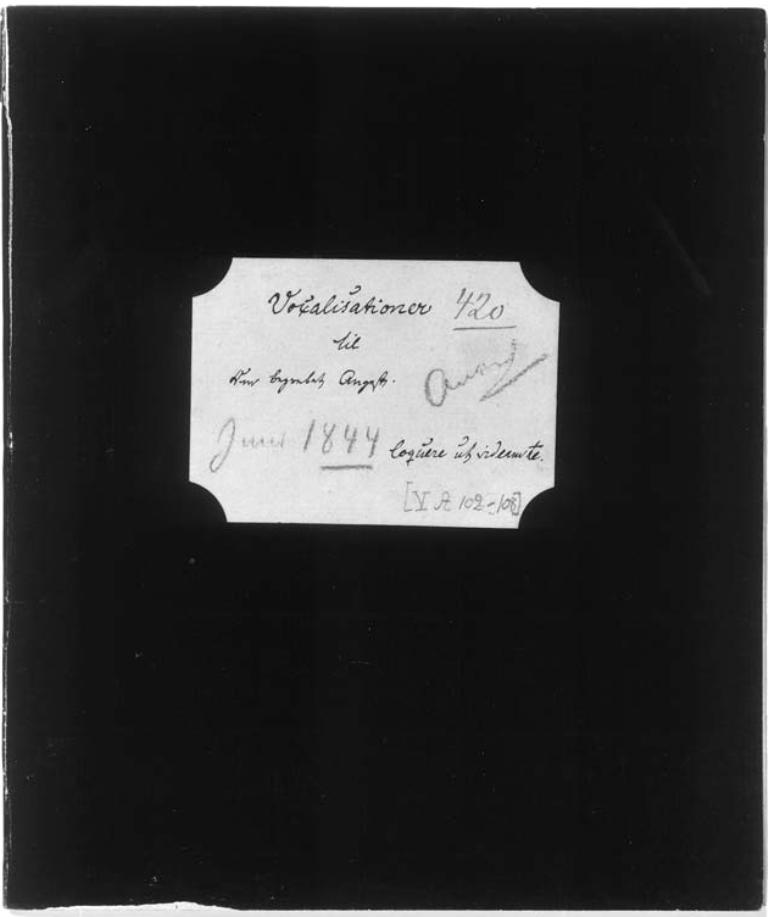 Vocalisationer 420
til
Om Begrebet Angest.
Juni 1844 loquere ut videam te.
[V A 102-108]